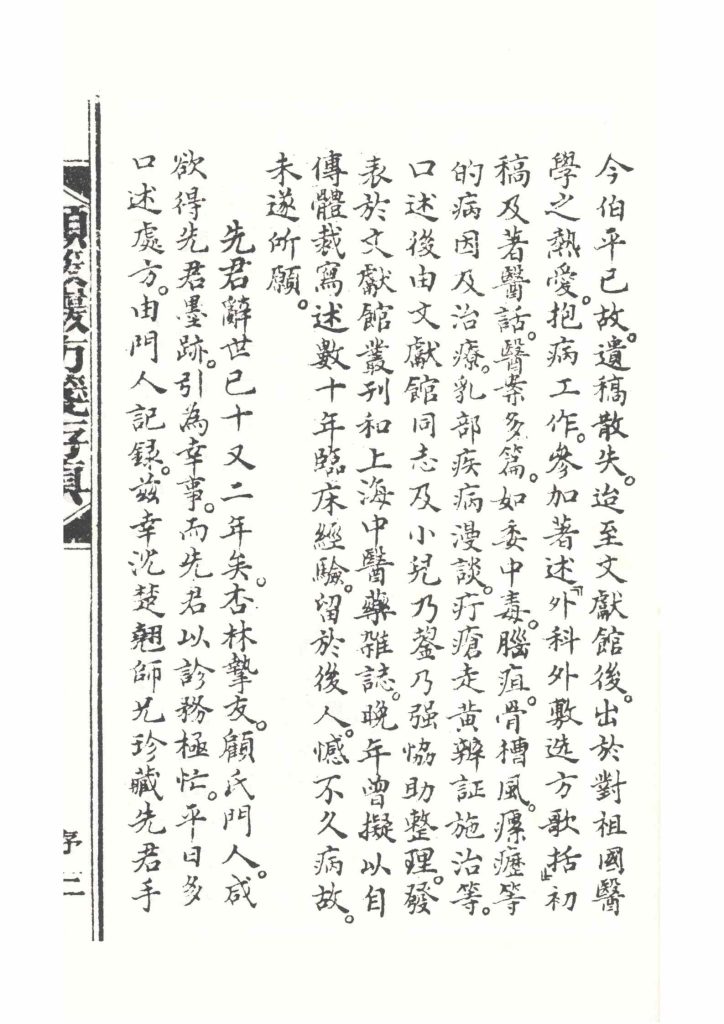 今伯平已故。遺稿散失。迨至文獻館後。出於對祖國醫
學之熱愛。抱病工作。參加著述『外科外敷选方歌括』初
稿及著醫話。醫案多篇。如委中毒。腦疽。骨槽風。瘰癧等
的病因及治療。乳部疾病漫談。疔瘡走黄辨証施治等。
口述後由文獻館同志及小兒乃蓥乃强恊助整理。發
表於文獻館叢刊和上海中醫藥雜誌。晚年曾擬以自
傳體裁寫述數十年臨床經驗。留於後人。憾不久病故。
未遂所願。
先君辭世已十又二年矣。杏林摯友。顧氏門人。咸
欲得先君墨跡。引為幸事。而先君以診務極忙。平日多
口述處方。由門人記録。兹幸沈楚翹師兄珍藏先君手
顧筱巖方箋存真
序 二